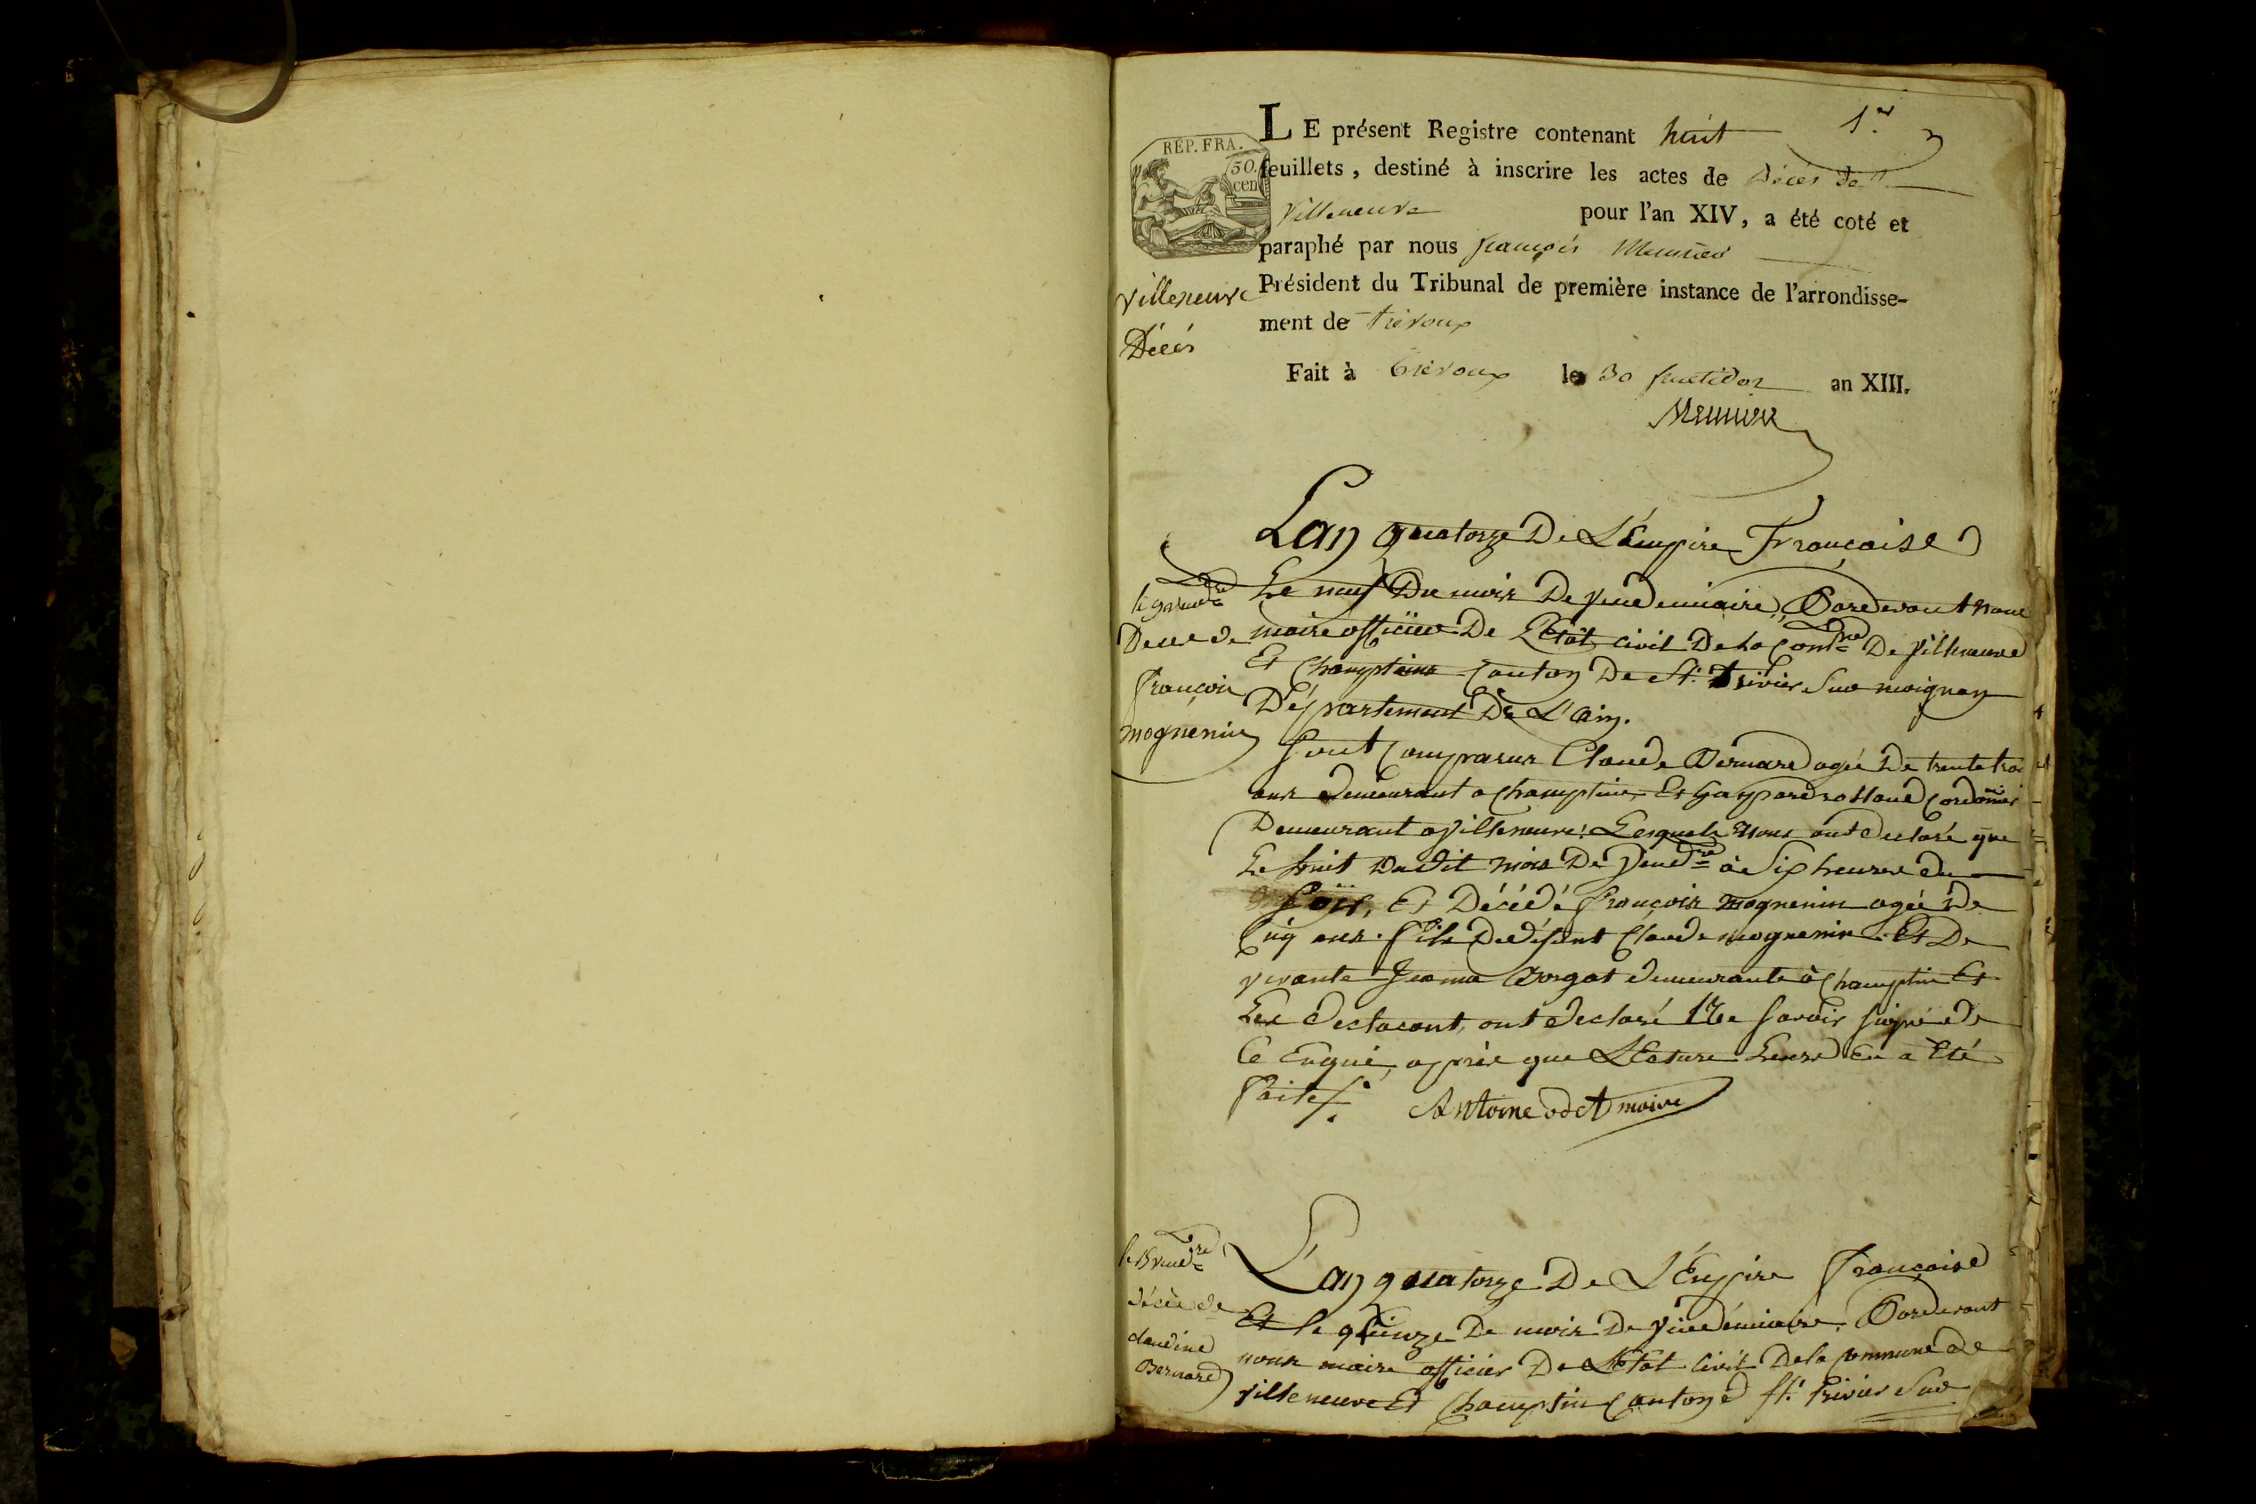 1.er
LE présent Registre contenant huit
feuillets, destiné à inscrire les actes de Décès de
Villeneuve pour l'an XIV, a été coté et
paraphé par nous françois Meunier
Président du Tribunal de première instance de l'arrondisse-
ment de trévoux
Fait à trévoux le 30 fructidor an XIII.
Meunier
RÉP. FRA.
50.
cen
Villeneuve
Décès
Lan quatorze De L'Empire Francaise
Le neuf Du mois De vendemiaire, Pardevant nous
maire officier De L'Etat civil De la Comne De Villeneuve
Et Champteins Canton De St. Trivier Sur moignan
Département De L'ain.
Sont Comparus Claude Bernard agée De trente trois
ans demeurant a Champtin, Et Gaspard Cordonnier
Demeurant a Villeneuve. Lesquels Nous ont declaré que
Le huit Du dit mois De Vendre à Six heures du
Soir, Et Décédé François mognenin agée De
Cinq ans. Fils De défunt Claude mognenin Et De
vivante Jeanne demeurante à Champtin Et
Les declarant, ont declaré Ne Savoir signé De
Ce Enquis, après que LEcture Leurs En a Eté
Faite.
Antoine odet maire
le 9 vendre
Decès de
François
mognenin
L'an quatorze De L'Empire Francaise
Et le quinze De mois De Vendémiaire. Pardevant
nous maire officier De L'Etat Civil De la Commune De
Villeneuve Et Champtin Canton d St. Trivier Sur
le 15 vendre
décès de
claudine
Bernard